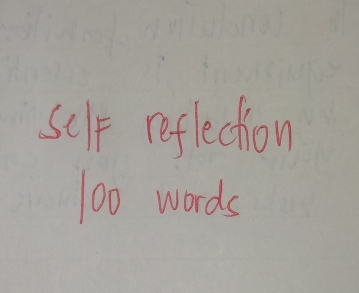 self reflection
100 words